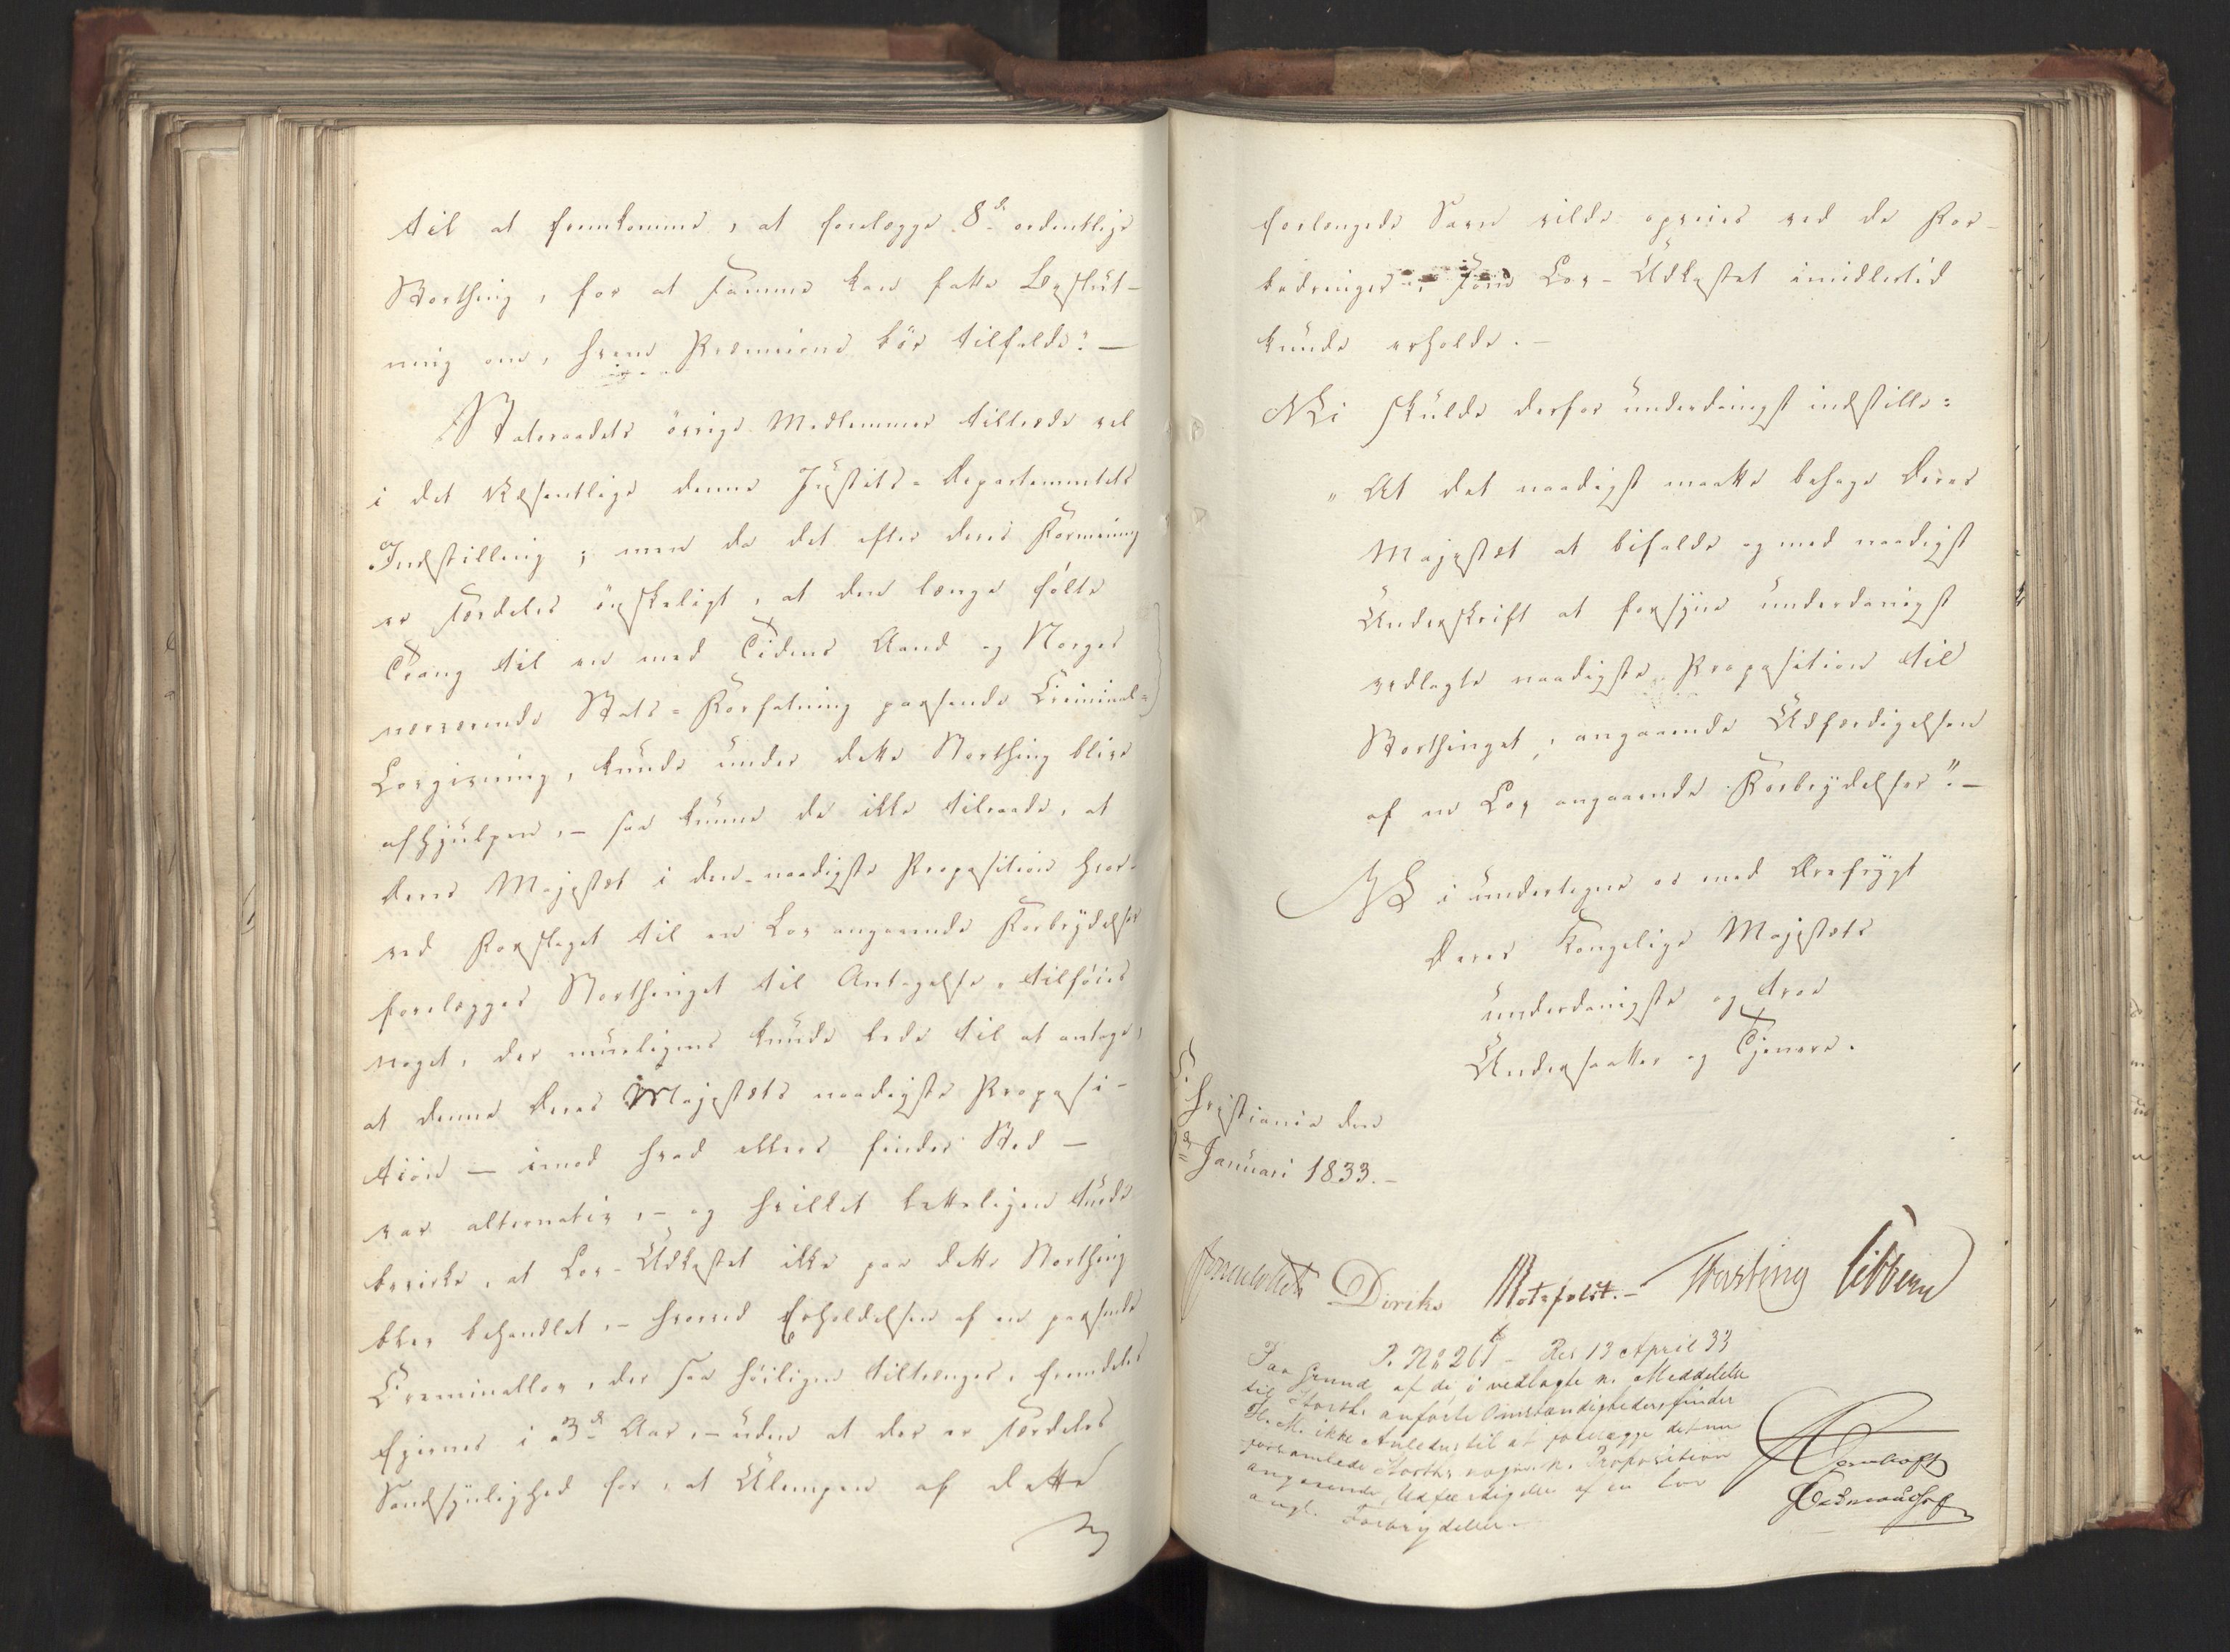 til at fremkomme, at forelægge 8de ordentlige
Storthing, for at samme kan fatte Beslut-
ning om, hvem Præmierne bör tilfalde." —
Statsraadets övrige Medlemmer tiltræde vel
i det Væsentlige denne Justits-Departementets
Indstilling; men da det efter deres Formening
er særdeles önskeligt, at den længe fölte
Trang til en med Tidens Aand og Norges
nærværende Stats-Forfatning passende Criminal-
Lovgivning, kunde under dette Storthing blive
afhjulpen, – saa kunne de ikke tilraade, at
Deres Majestæt i den naadigste Proposition hvor-
ved Forslaget til en Lov angaaende Forbrydelser
forelægges Storthinget til Antagelse, tilföies
noget, der mueligens kunde lede til at antage,
at denne Deres Majestæts naadigste Proposi-
tion — imod hvad ellers finder Sted —
var alternativ, – og hvilket letteligen turde
bevirke, at Lov-Udkastet ikke paa dette Storthing
blev behandlet, – hvorved Erholdelsen af en passende
Criminallov, der saa höiligen tiltrænges, fremdeles
fjernes i 3de Aar, – uden at der er særdeles
Sandsynlighed for, at Ulempen af dette
forlængede Savn vilde opveies ved de For-
bedringer, som Lov-Udkastet imidlertid
kunde erholde. –
Vi skulde derfor underdanigst indstille:
„At det naadigst maatte behage Deres
Majestæt at bifalde og med naadigst
Underskrift at forsyne underdanigst
vedlagte naadigste Proposition til
Storthinget, angaaende Udfærdigelsen
af en Lov angaaende Forbrydelser". –
Vi undertegne os med Ærefrygt
Deres Kongelige Majestæts
underdanigste og troe
Undersaatter og Tjenere.
Christiania den
Januari 1833. –
Diriks Motzfeldt. – Sibbern
P. No 261 – Res 13 April 33
Paa Grund af de i vedlagte n. Meddelelse
til Storth. anförte Omstændigheder, finder
H. M. ikke Anledn. til at forelægge det nu
forsamlede Storth. nogen n. Proposition
angaaende Udfærdigelse af en Lov
angl. Forbrydelser. –